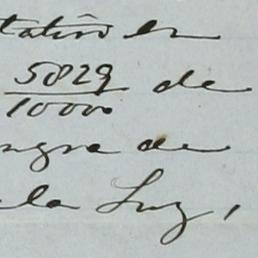 tativo en
5829/10000 de
ngra de
la Luz,